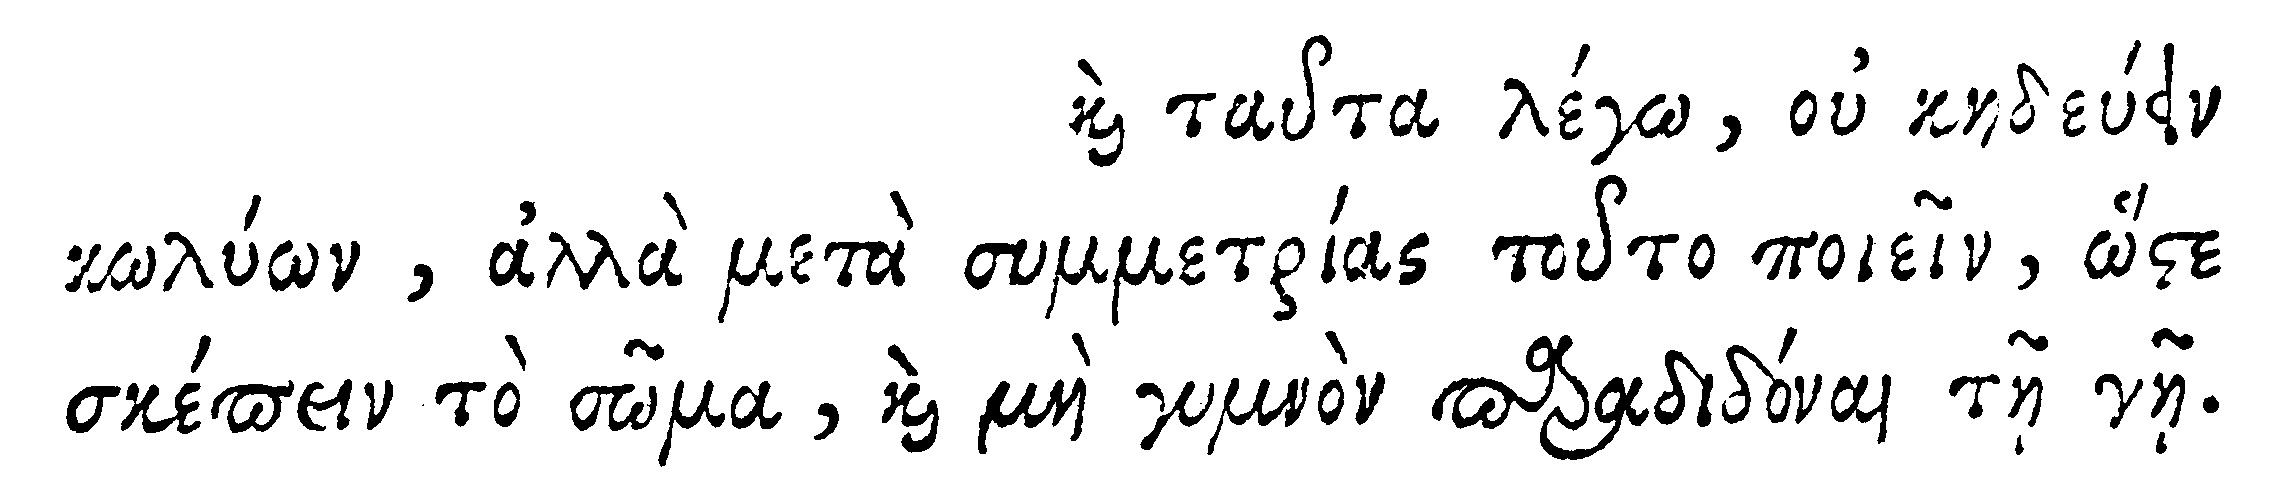 ϗ̀ ταῦτα λέγω, οὐ κηδεύειν
κωλύων, ἀλλὰ μετὰ συμμετρίας τοῦτο ποιεῖν, ὥϛε
σκέπειν τὸ σῶμα, ϗ̀ μὴ γυμνὸν παραδιδόναι τῇ γῇ.